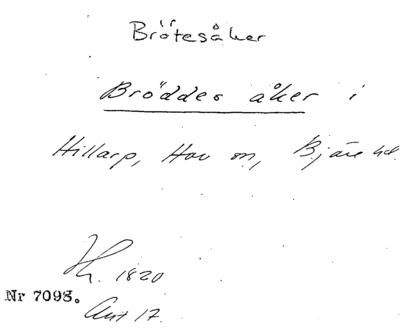 Brötesåker
Bröddes åker i
Hillarp, Hov sn, Bjäre hd.
1820
Nr 7098.
Ant 17.